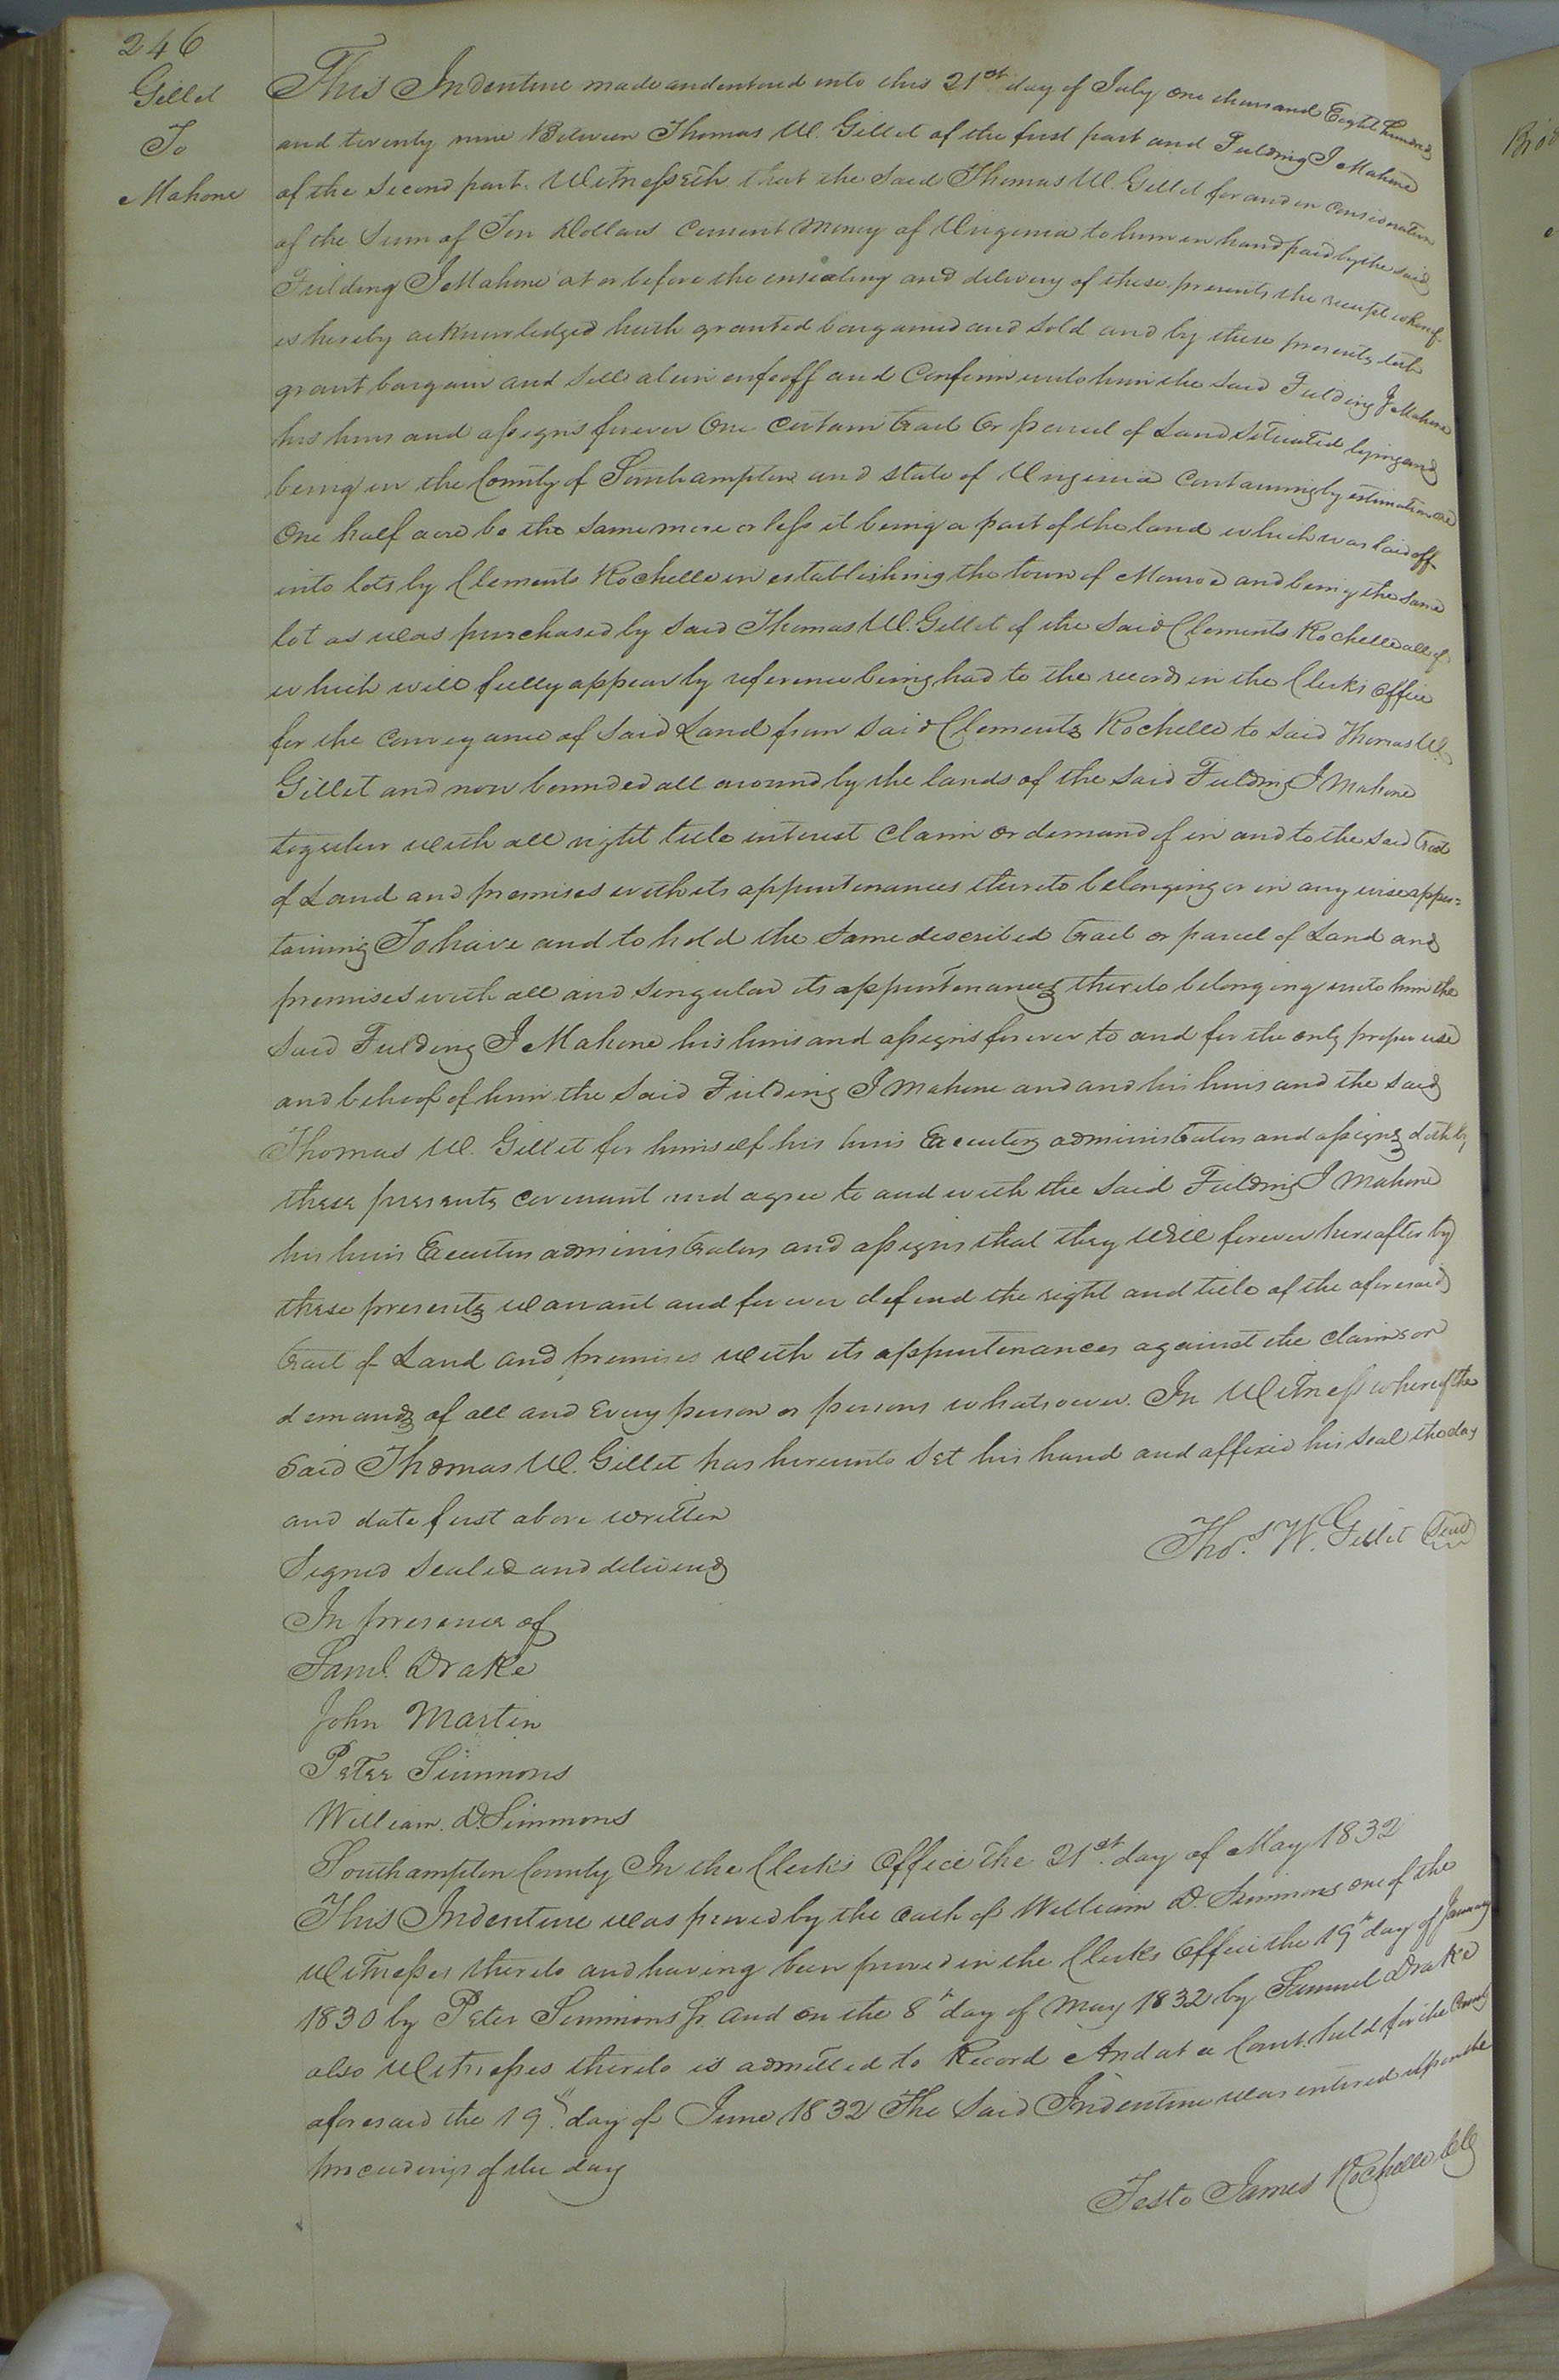 246
Gillet
To
Mahone
This Indenture made and entered into this 21st. day of July one thousand Eight hundred
and twenty nine Between Thomas W. Gillet of the first part and Feilding J Mahone
of the Second part. Witnesseth that the Said Thomas W. Gillet for and in Consideration
of the Sum of Ten Dollars Current Money of Virginia to him in hand paid by the said
Feilding J Mahone at or before the ensealing and delivery of these presents the receipt whereof
is hereby acknowledged hath granted bargained and Sold and by these presents doth
grant bargain and Sell alien enfeoff and Confirm unto him the Said Feilding J Mahone
his heirs and assigns forever One Certain Tract Or parcel of Land Situated lying and
being in the County of Southampton and State of Virginia Containing by estimation
One half acre be the Same more or less it being a part of the land which was laid off
into lots by Clements Rochelle in establishing the town of Monroe and being the Same
lot as was purchased by Said Thomas W. Gillet of the Said Clements Rochelle all of
which will fully appear by reference being had to the records in the Clerks Office
for the Conveyance of Said Land from Said Clements Rochelle to Said Thomas W.
Gillet and now bounded all around by the lands of the Said Feilding J Mahone
together with all right title interest Claim or demand of in and to the Said Tract
of Land and premises with its appurtenances thereto belonging or in any wise apper=
taining To have and to hold the Same described Tract or parcel of Land and
premises with all and Singular its appurtenances thereto belonging unto him the
Said Feilding J Mahone his heirs and assigns forever to and for the only proper use
and behoof of him the Said Feilding J Mahone and and his heirs and the Said
Thomas W. Gillet for himself his heirs Executors administrators and assigns doth by
these presents Covenant and agree to and with the Said Feilding J Mahone
his heirs Executors administrators and assigns that they Will forever hereafter by
these presents warrant and forever defend the right and title of the aforesaid
Tract of Land and premises with its appurtenances against the Claims or
demands of all and Every person or persons whatsoever. In Witness whereof the
Said Thomas W. Gillet has hereunto Set his hand and affixed his Seal the day
and date first above written
Thos. W. Gillet Seal
Signed Sealed and delivered
In presence of
Saml. Drake
John Martin
Peter Simmons
William. D. Simmons
Southampton County In the Clerk's Office The 21st. day of May 1832
This Indenture was proved by the Oath of William D. Simmons one of the
Witnesses thereto and having been proved in the Clerks Office the 19th day of January
1830 by Peter Simmons Jr. and on the 8th day of May 1832 by Samuel Drake
also Witnesses thereto is admitted to Record And at a Court held for the County
aforesaid the 19th. day of June 1832 The Said Indenture was entered upon the
proceedings of the day
Teste James Rochelle